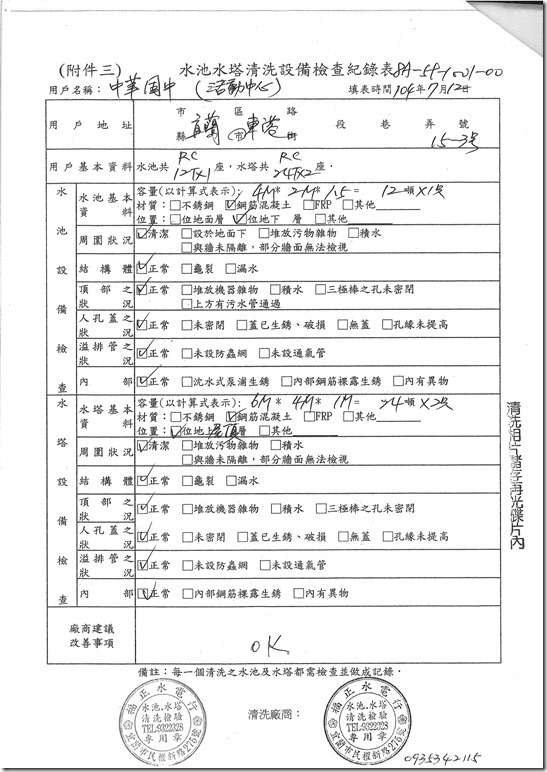 (附件三) 水池水塔清洗設備檢查紀錄表 8A-59-1001-00
用戶名稱: 中華國中 (活動中心) 填表時間 104年7月12日
用戶地址 宜蘭 縣市 區市 東港 路街 段 巷 弄 號 15-3號
用戶基本資料 水池共 RC 12T×1 座,水塔共 RC 24T×2 座。
水池設備檢查
水池基本資料 容量(以計算式表示): 4M* 2M* 1.5 = 12 噸 ×1只
材質:□不銹鋼 ☑鋼筋混凝土 □FRP □其他
位置:□位地面層 ☑位地下 層 □其他
周圍狀況 ☑清潔 □設於地面下 □堆放污物雜物 □積水
□與牆未隔離,部分牆面無法檢視
結構體 ☑正常 □龜裂 □漏水
頂部之狀況 ☑正常 □堆放機器雜物 □積水 □三極棒之孔未密閉
□上方有污水管通過
人孔蓋之狀況 ☑正常 □未密閉 □蓋已生銹、破損 □無蓋 □孔緣未提高
溢排管之狀況 ☑正常 □未設防蟲網 □未設通氣管
內部 ☑正常 □沈水式泵浦生銹 □內部鋼筋裸露生銹 □內有異物
水塔設備檢查
水塔基本資料 容量(以計算式表示): 6M* 4M* 1M = 24噸 ×2只
材質:□不銹鋼 ☑鋼筋混凝土 □FRP □其他
位置:☑位地上 屋頂 層 □其他
周圍狀況 ☑清潔 □堆放污物雜物 □積水
□與牆未隔離,部分牆面無法檢視
結構體 ☑正常 □龜裂 □漏水
頂部之狀況 ☑正常 □堆放機器雜物 □積水 □三極棒之孔未密閉
人孔蓋之狀況 ☑正常 □未密閉 □蓋已生銹、破損 □無蓋 □孔緣未提高
溢排管之狀況 ☑正常 □未設防蟲網 □未設通氣管
內部 ☑正常 □內部鋼筋裸露生銹 □內有異物
清洗相片儲存再光碟片內
廠商建議改善事項 OK
備註:每一個清洗之水池及水塔都需檢查並做成記錄。
清洗廠商:
福正水電行
水池.水塔
清洗檢驗
TEL:9322328
專用章
宜蘭市民權新路276號
福正水電行
水池.水塔
清洗檢驗
TEL:9322328
專用章
宜蘭市民權新路276號
0935342115